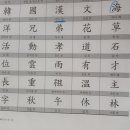 韓國漢文海
洋兄弟花草
活動孝道石
位雲雨有才
長重祖溫主
字秋午休林